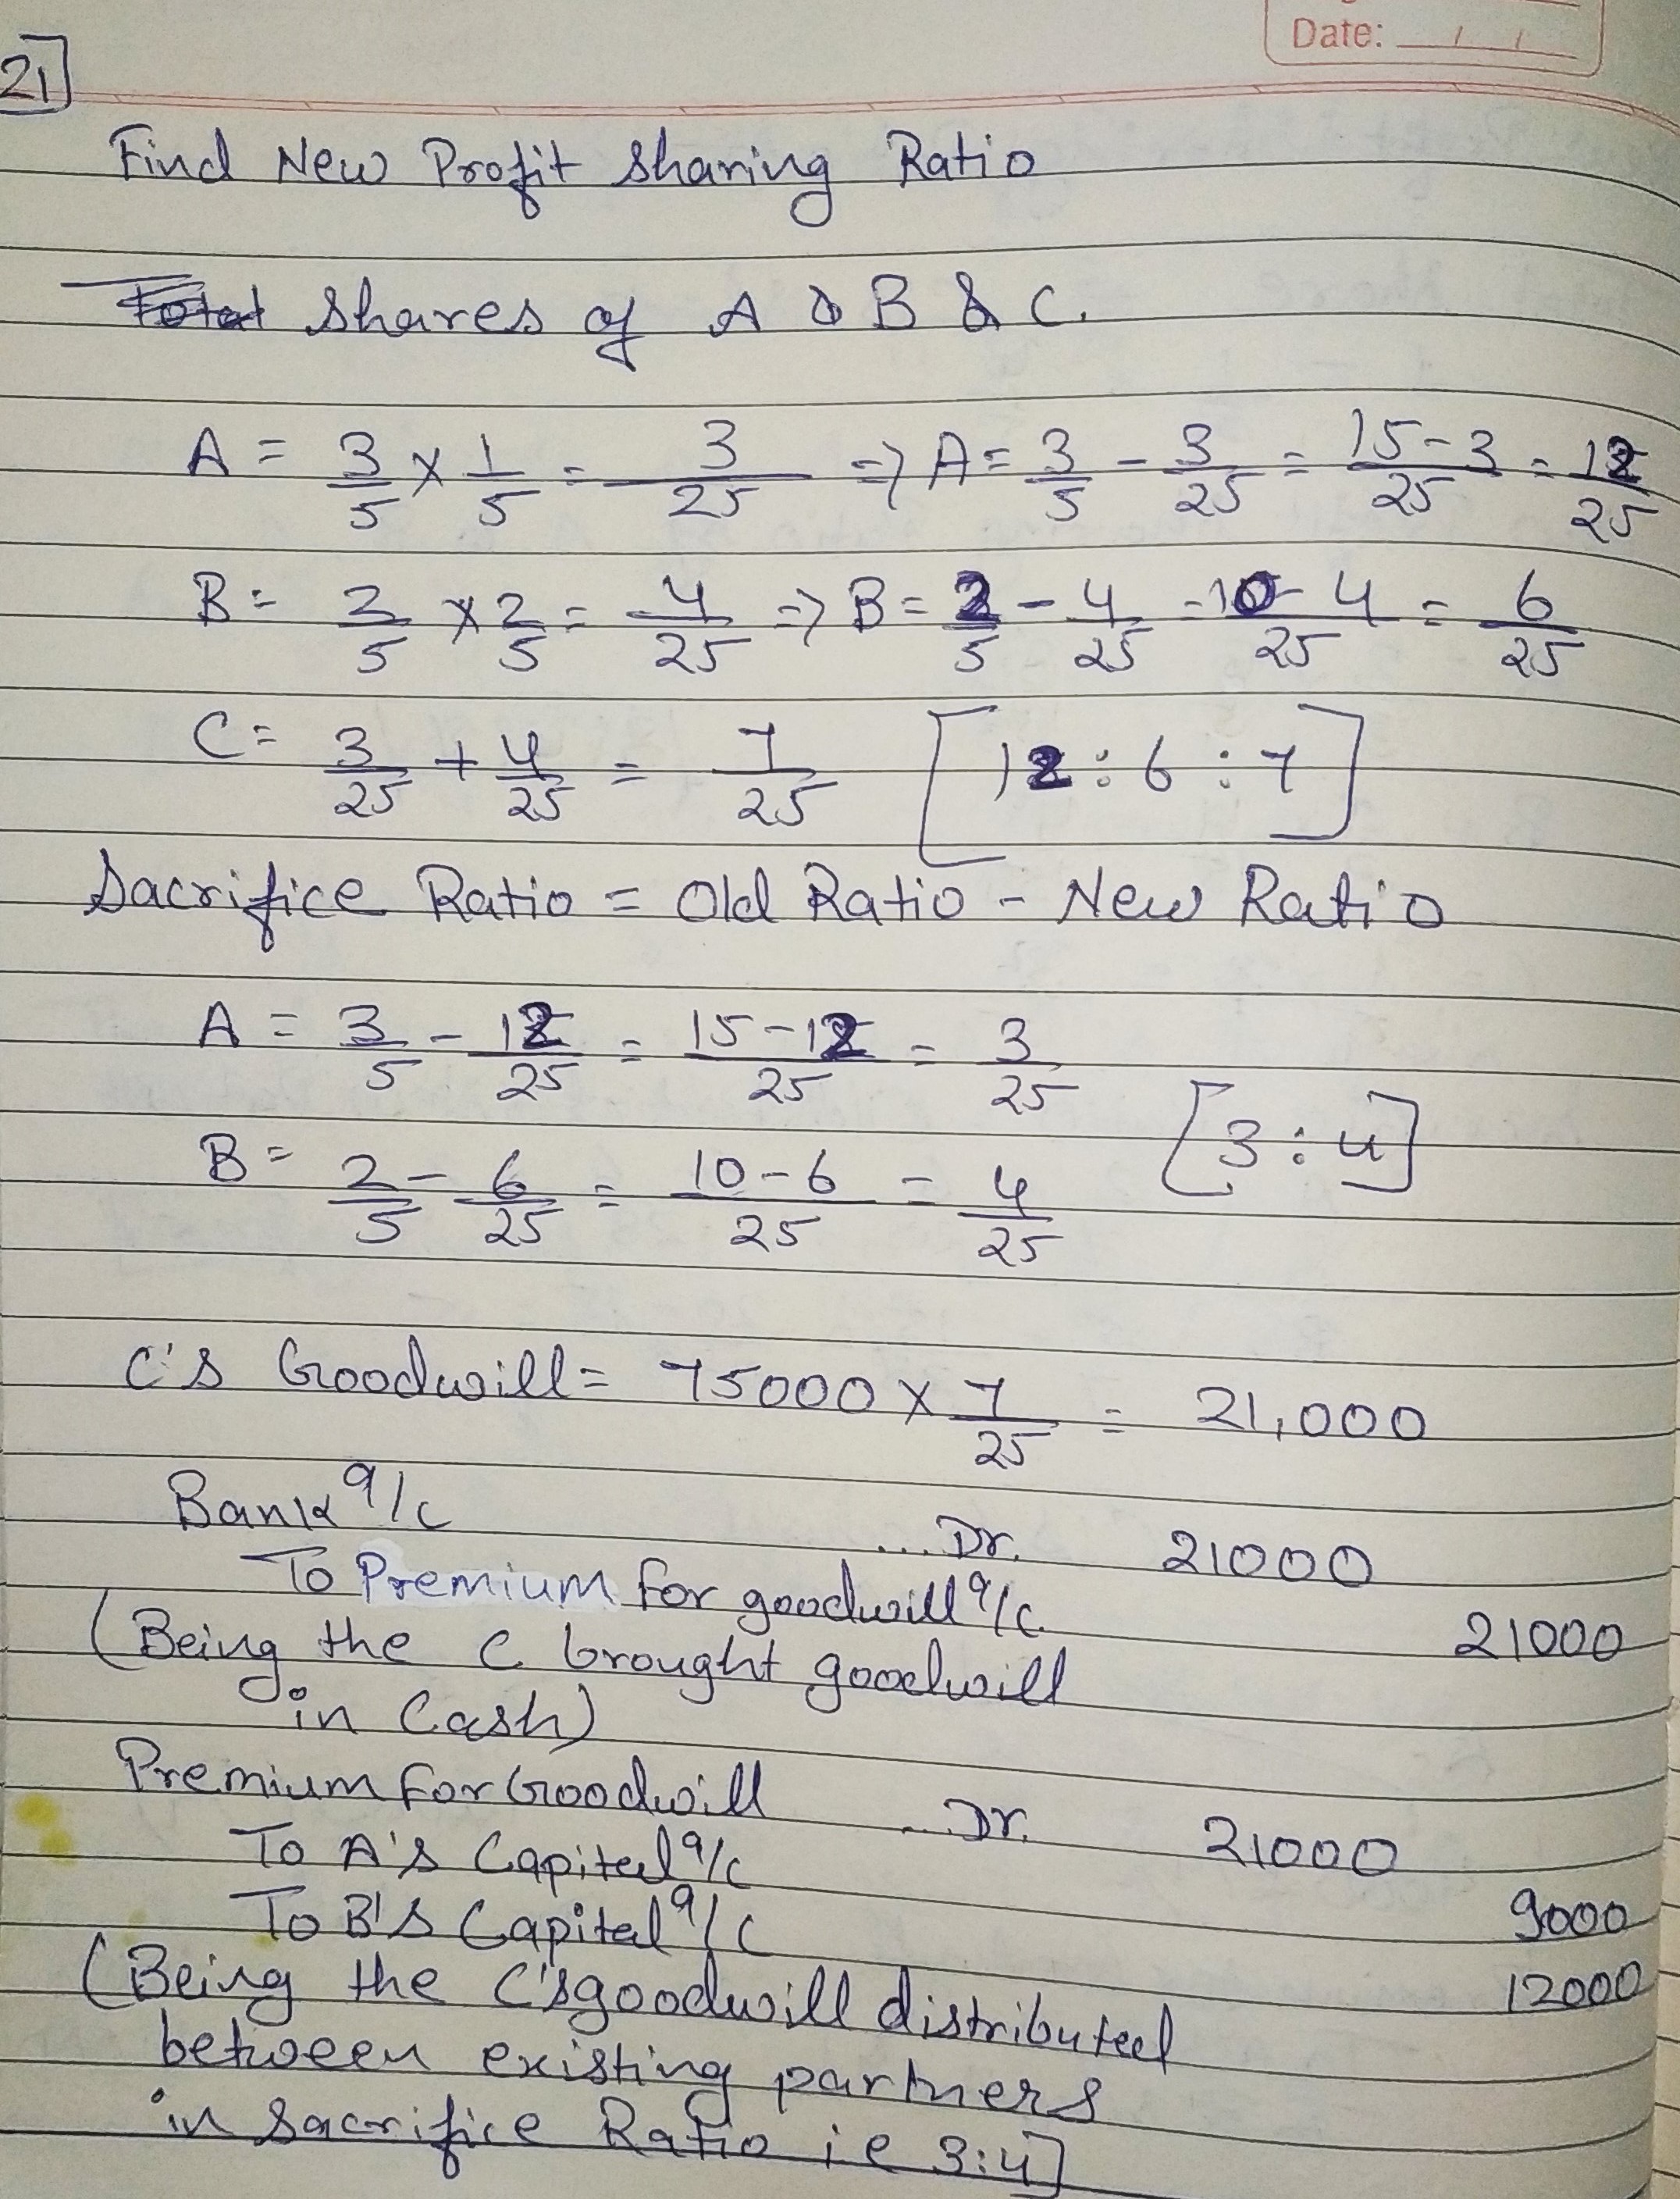 Date: / /
21]
Find New Profit Sharing Ratio
Shares of A & B & C.
A = 3/5 × 1/5 = 3/25 => A = 3/5 - 3/25 = 15-3/25 = 12/25
B = 2/5 × 2/5 = 4/25 => B = 2/5 - 4/25 = 10-4/25 = 6/25
C = 3/25 + 4/25 = 7/25 [12 : 6 : 7]
Sacrifice Ratio = Old Ratio - New Ratio
A = 3/5 - 12/25 = 15-12/25 = 3/25
[3 : 4]
B = 2/5 - 6/25 = 10-6/25 = 4/25
C's Goodwill = 75000 × 7/25 = 21,000
Bank a/c ... Dr. 21000
To Premium for goodwill a/c. 21000
(Being the C brought goodwill
in Cash)
Premium for Goodwill ... Dr. 21000
To A's Capital a/c 9000
To B's Capital a/c 12000
(Being the C's goodwill distributed
between existing partners
in Sacrifice Ratio i e 3:4]